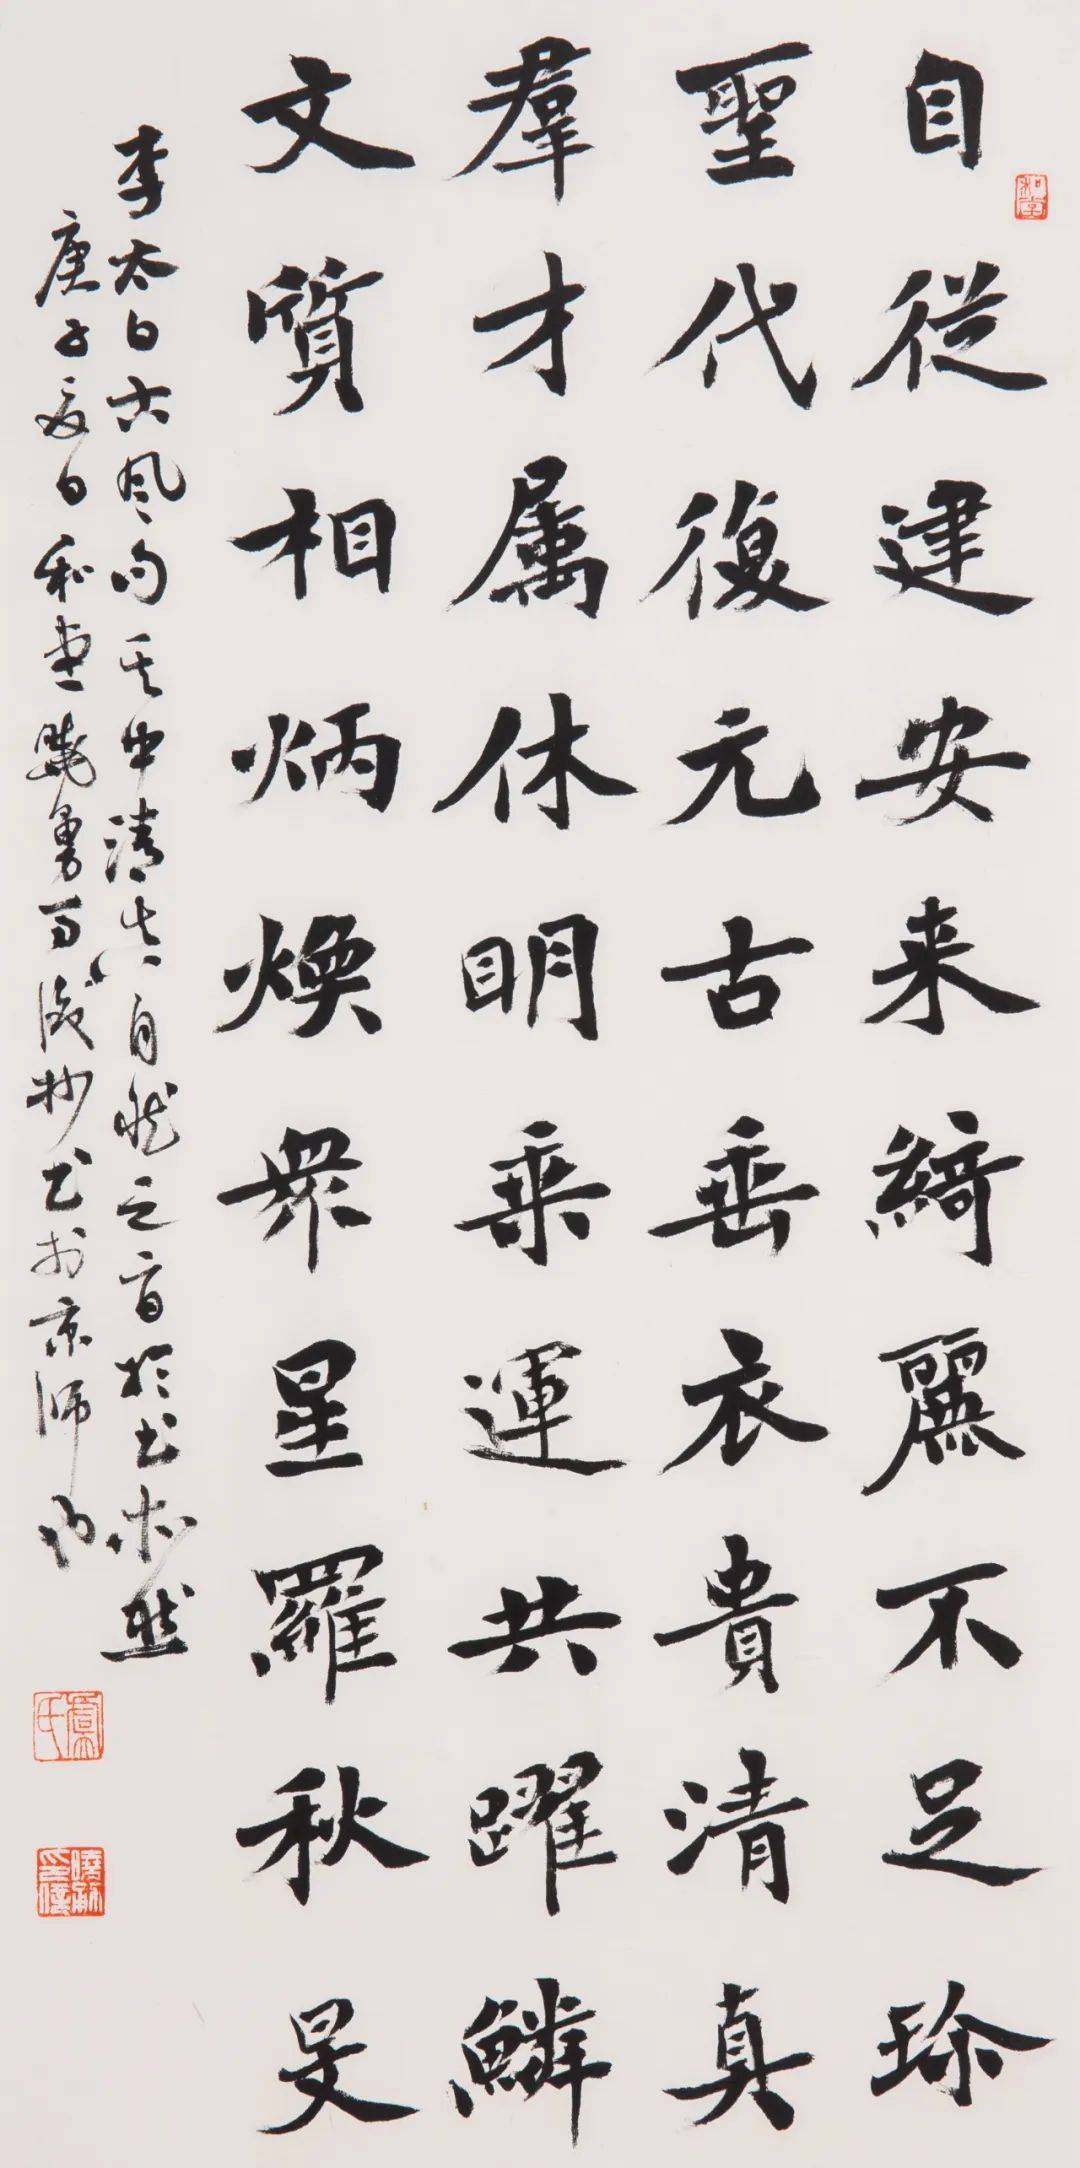 自從建安来綺麗不足珎
聖代復元古垂衣貴清真
羣才属休明乗運共躍鱗
文質相炳煥衆星羅秋旻
李太白古風句其中清真自然之旨於書亦然
庚子夏日和堂曉勇抄書於京師